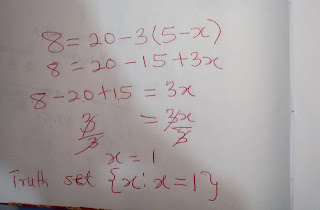 8 = 20 - 3(5 - x)
8 = 20 - 15 + 3x
8 - 20 + 15 = 3x
3/3 = 3x/3
x = 1
Truth set {x: x = 1}